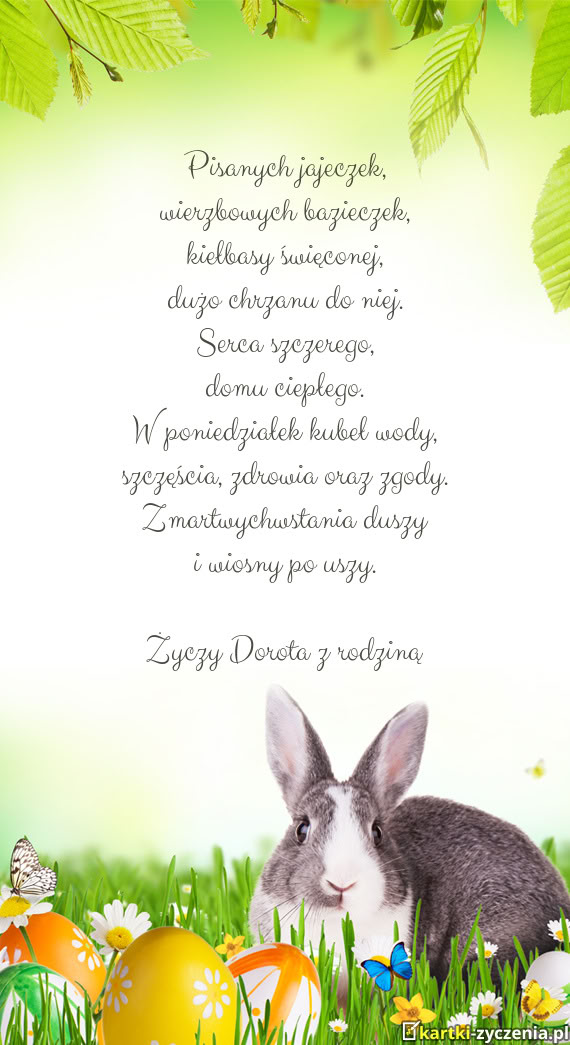 Pisanych jajeczek,
wierzbowych bazieczek,
kiełbasy święconej,
dużo chrzanu do niej.
Serca szczerego,
domu ciepłego.
W poniedziałek kubeł wody,
szczęścia, zdrowia oraz zgody.
Zmartwychwstania duszy
i wiosny po uszy.
Życzy Dorota z rodziną
kartki-zyczenia.pl